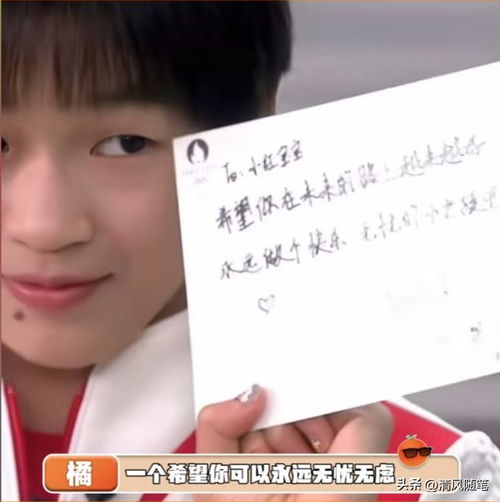 To: 小宝宝
希望你在未来的路上越来越好
永远做个快乐 无忧的小
♡
橘 一个希望你可以永远无忧无虑
头条 @清风随笔